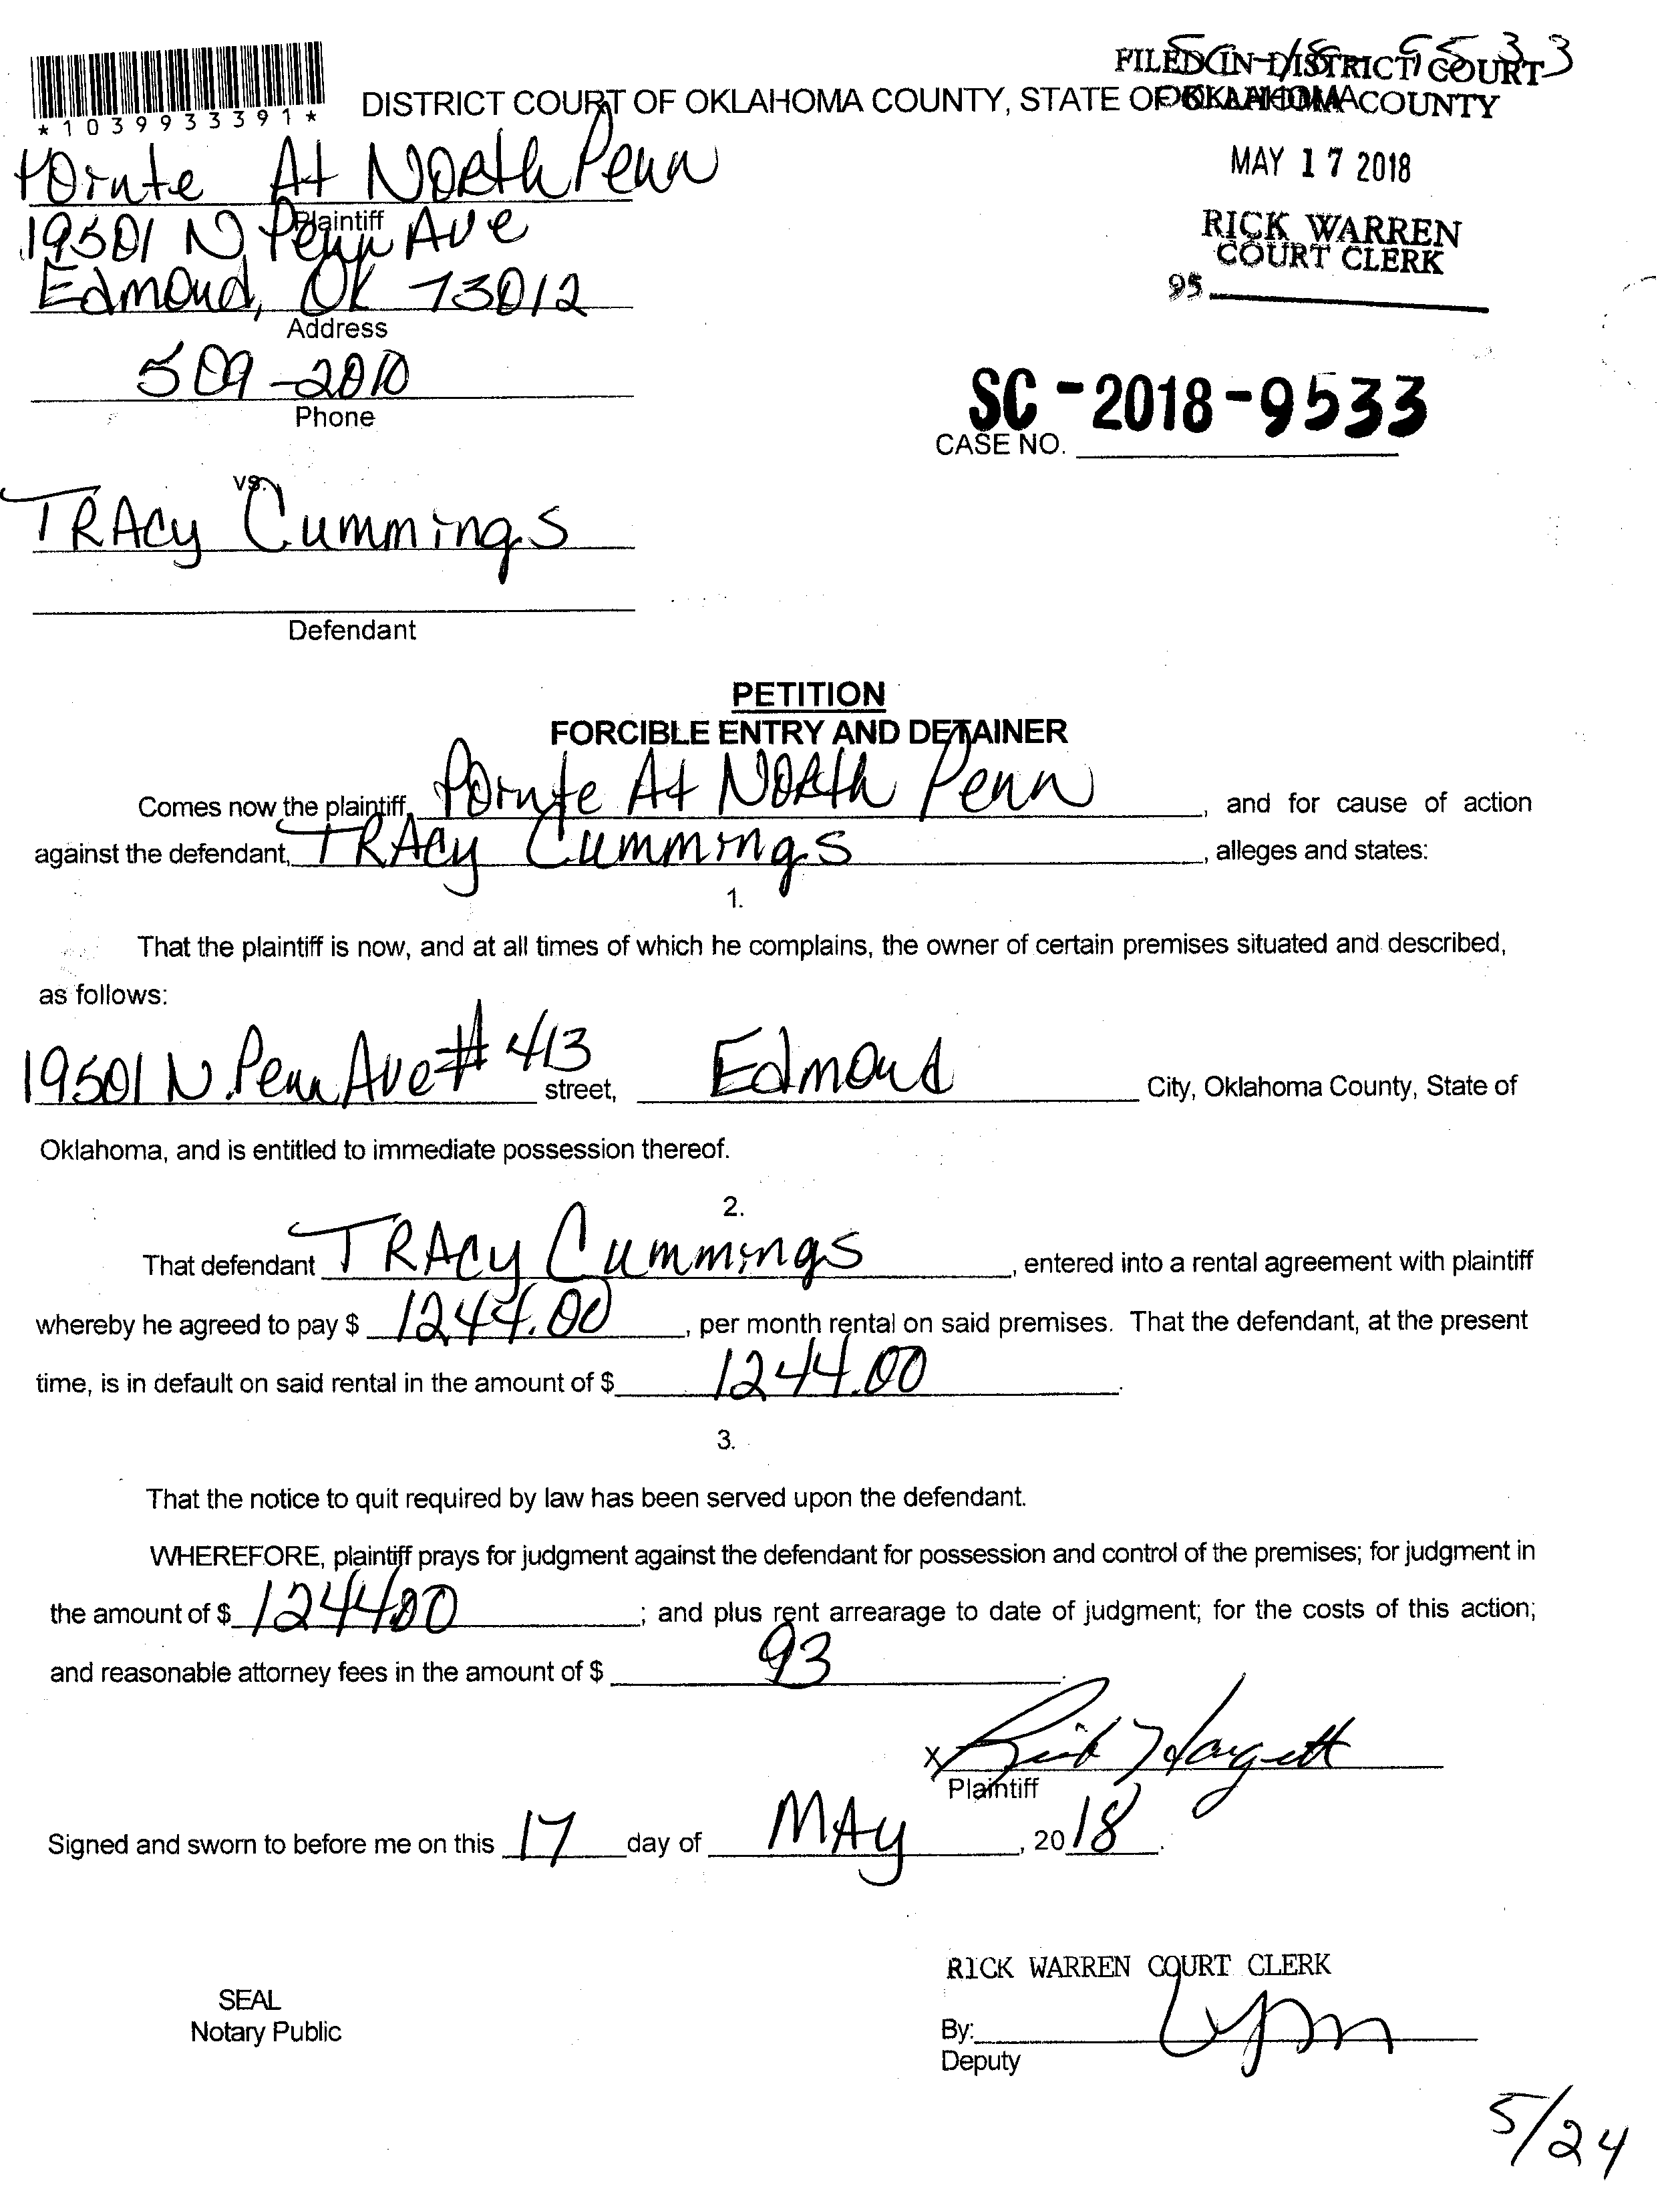 SC-18-9533
FILED IN DISTRICT COURT
*1039933391*
DISTRICT COURT OF OKLAHOMA COUNTY, STATE OF OKLAHOMA
OKLAHOMA COUNTY
Pointe At North Penn
MAY 17 2018
Plaintiff
19501 N Penn Ave
RICK WARREN
COURT CLERK
Edmond, OK 73012
95
Address
509-2010
Phone
SC-2018-9533
CASE NO.
vs.
TRAcy Cummings
Defendant
PETITION
FORCIBLE ENTRY AND DETAINER
Comes now the plaintiff, Pointe At North Penn, and for cause of action
against the defendant, TRAcy Cummings, alleges and states:
1.
That the plaintiff is now, and at all times of which he complains, the owner of certain premises situated and described,
as follows:
19501 N. Penn Ave # 413 street, Edmond City, Oklahoma County, State of
Oklahoma, and is entitled to immediate possession thereof.
2.
That defendant TRAcy Cummings, entered into a rental agreement with plaintiff
whereby he agreed to pay $ 1244.00, per month rental on said premises. That the defendant, at the present
time, is in default on said rental in the amount of $ 1244.00.
3.
That the notice to quit required by law has been served upon the defendant.
WHEREFORE, plaintiff prays for judgment against the defendant for possession and control of the premises; for judgment in
the amount of $ 1244.00; and plus rent arrearage to date of judgment; for the costs of this action;
and reasonable attorney fees in the amount of $ 93.
x Rick Hargett
Plaintiff
Signed and sworn to before me on this 17 day of MAy, 2018.
RICK WARREN COURT CLERK
SEAL
Notary Public
By: Lynn
Deputy
5/24